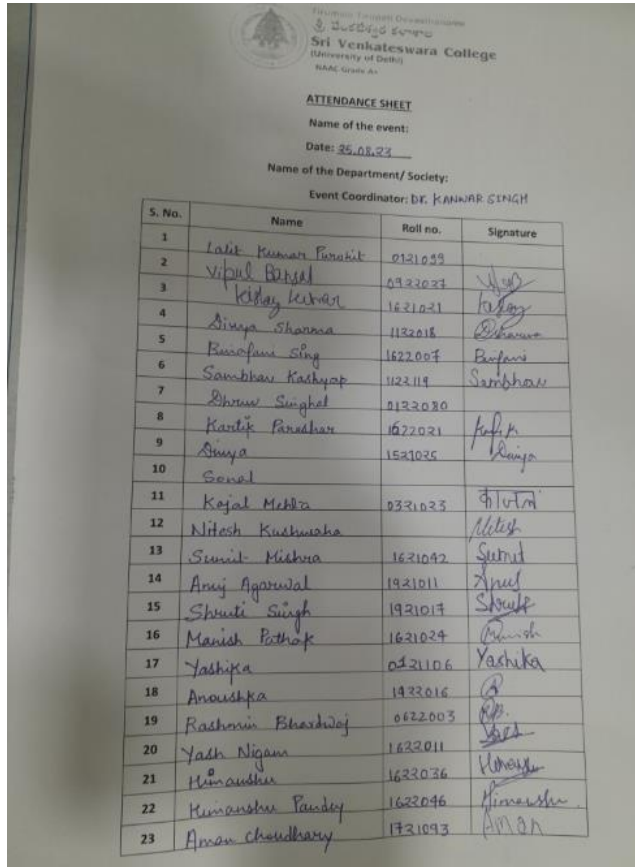 Tirumala Tirupati Devasthanams
శ్రీ వేంకటేశ్వర కళాశాల
Sri Venkateswara College
(University of Delhi)
NAAC Grade A+
ATTENDANCE SHEET
Name of the event:
Date: 25.08.23
Name of the Department/ Society:
Event Coordinator: Dr. KANWAR SINGH
S. No. Name Roll no. Signature
1 Lalit Kumar Purohit 0121099
2 Vipul Bansal 0922027
3 Kislay Kumar 1621021 Kislay
4 Divya Sharma 1132018 Dsharma
5 1622007
6 Sambhav Kashyap 1122119 Sambhav
7 Dhruv Singhal 0122080
8 Kartik Parashar 1622021 Kartik
9 Divya 1521025 Divya
10 Sonal
11 Kajal Mehla 0321023 काजल
12 Nitesh Kushwaha Nitesh
13 Sumit Mishra 1621042 Sumit
14 Anuj Agarwal 1921011 Anuj
15 Shruti Singh 1921017 Shruti
16 Manish Pathak 1621024 Manish
17 Yashika 0121106 Yashika
18 Anoushka 1422016
19 Bhardwaj 0622003 RB.
20 Yash Nigam 1622011
21 Himanshu 1622036 Himanshu
22 Himanshu Pandey 1622046 Himanshu
23 Aman Choudhary 1721093 Aman